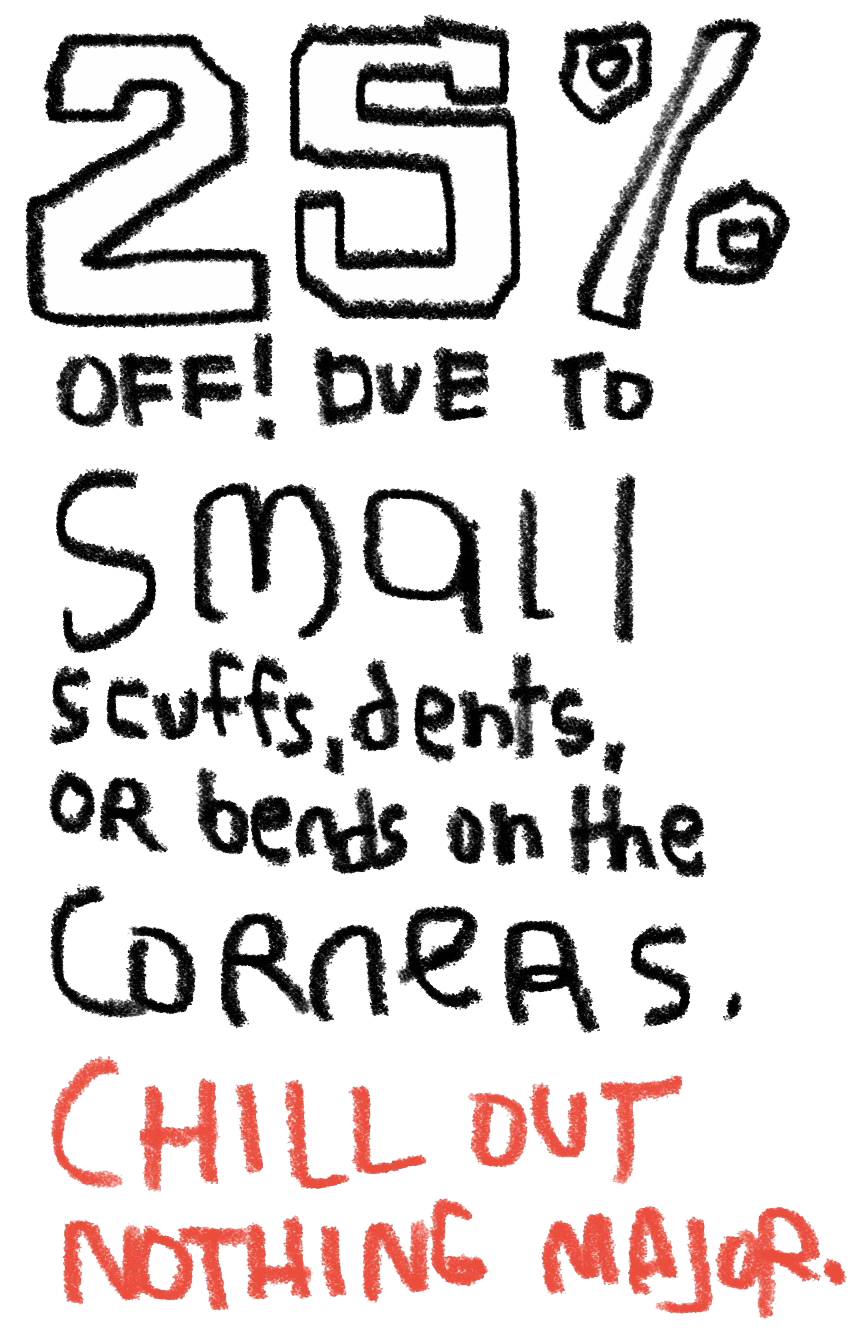 25%
OFF! DUE TO
Small
scuffs, dents,
OR bends on the
CORneRs.
CHILL OUT
NOTHING MAJOR.